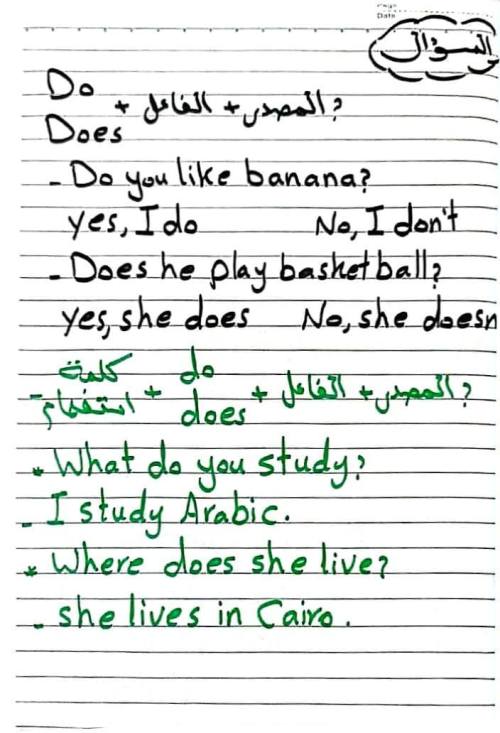 Page
Date
السؤال
Do
Does + الفاعل + المصدر؟
- Do you like banana?
yes, I do No, I don't
- Does he play basketball?
yes, she does No, she doesn
- كلمة استفهام + do does + الفاعل + المصدر؟
* What do you study?
- I study Arabic.
* Where does she live?
- she lives in Cairo.